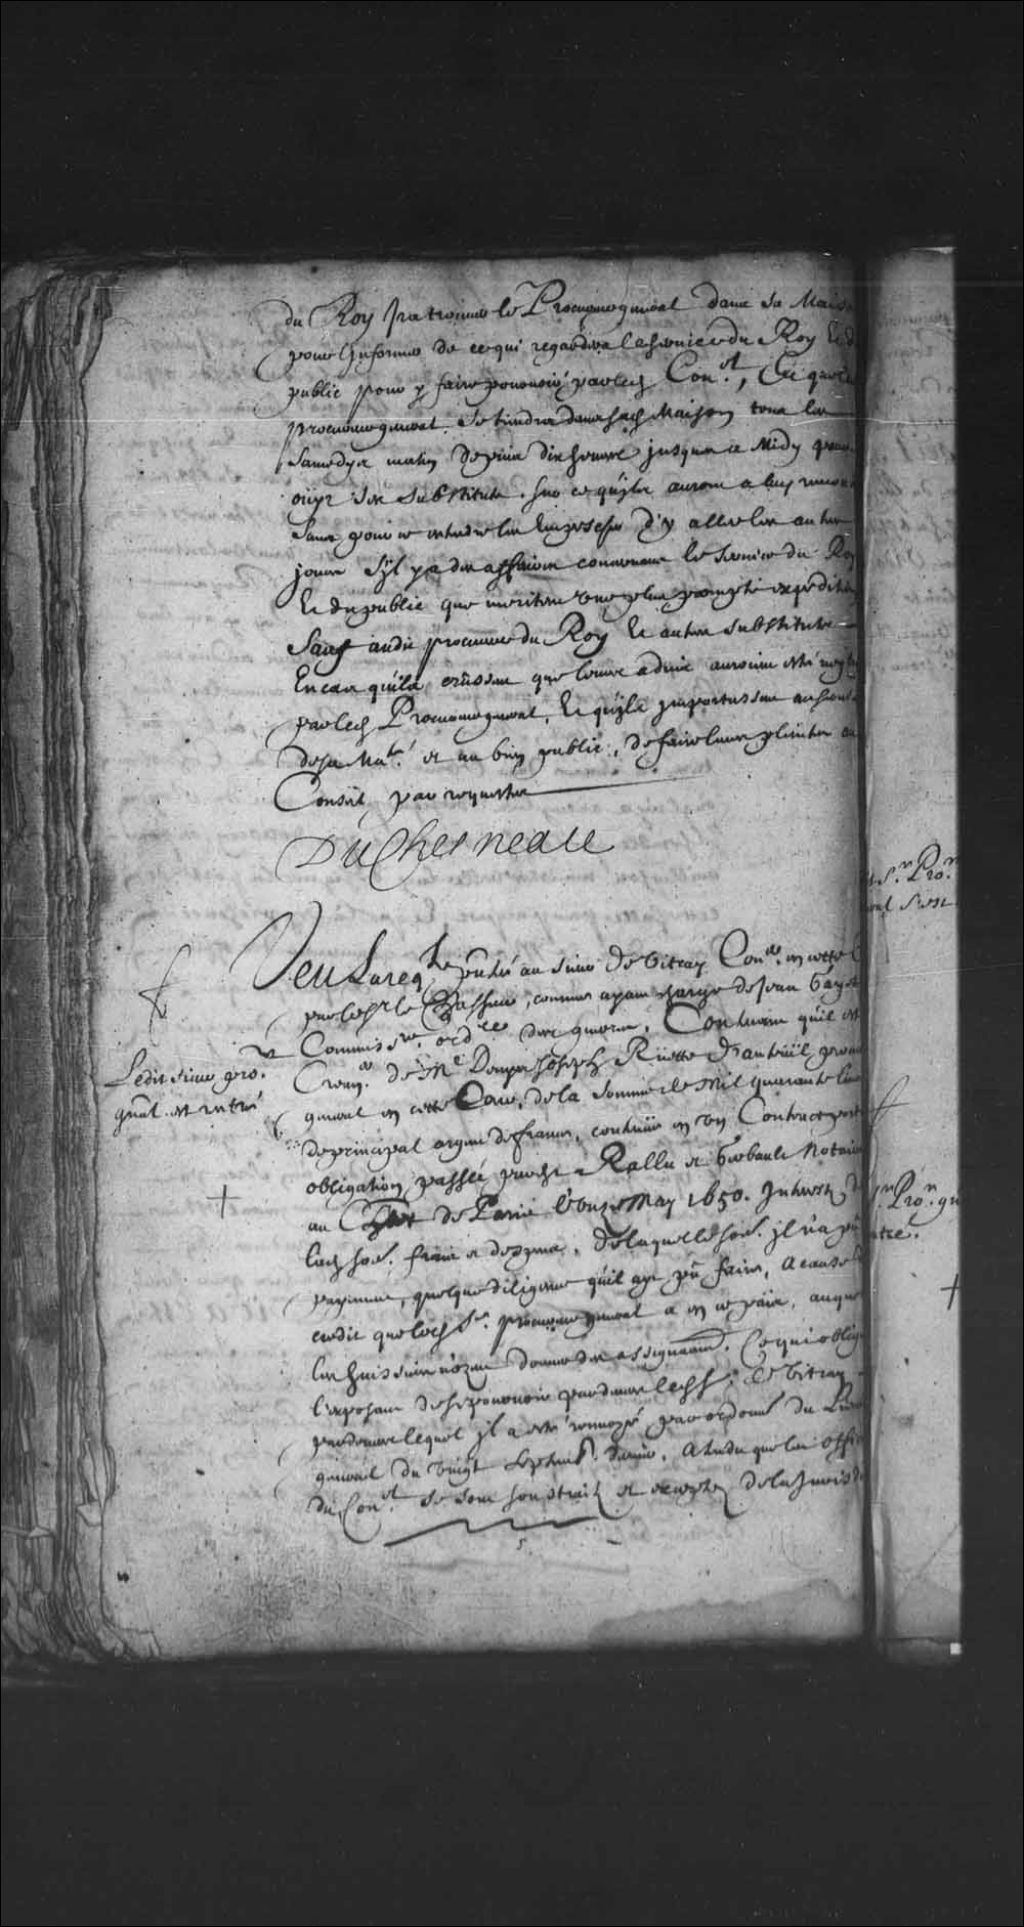 du Roy ira trouver le Procureur general dans sa Maiso
pour l'informer de ce qui regardera le service du Roy Et d
public pour y faire pourvoir par led. Con.el, Et que le
procureur general se tiendra dans sad. Maison tous les
samedys matin depuis dix heures jusques a Midy pour
oüyr ses substituts sur ce qu'ils auront a luy
sans pour ce entendre les Empescher d'y aller les autres
jours s'il y a des affaires concernans le service du Roy
Et du public qui meritent une plus prompte expedition
Sauf audit procureur du Roy Et autres substituts
En cas qu'ils crûssent que leurs advis auroient esté negl
par led. Procureur general, Et qu'ils importassent au service
de sa Ma.té et au bien public, de faire leurs plaintes au
Conseil par requestes
DuChesneau
Veu La req.te pntée au sieur de Vitray Con.er en cette C
par le Vasseur, comme ayant charge de Jean
Commiss.re ord.re des guerres, Contenant qu'il est
Crean.er de M.e Denys Joseph Rüette D'auteüil procur
general en cette Cour, de la somme de Mil quarante livres
de principal argent de france, contenüe en un Contract port
obligation passée pardevant Rallu et Gerbault Notaires
au Ch.let de Paris le onze May 1650. Interests de
lad. som. frais et despens, de laquelle som. il n'a pû
payement, quelque diligence qu'il ayt pû faire, a cause
credit que led. S.r procureur general a en ce païs, auquel
les huissiers n'ozent donner des assignaõns. Ce qui oblige
l'exposant de se pourvoir pardevant led. S. de Vitray
pardevant lequel il a esté renvoyé par ordonn.ce du Lieu
general du vingt Septemb. dernier, attendu que les offici
du Con.el se sont soustraits et exemptez de la Jurisd
Ledit sieur pro.r
gnãl est rentré
S.r Pro.r
Pro.r gn